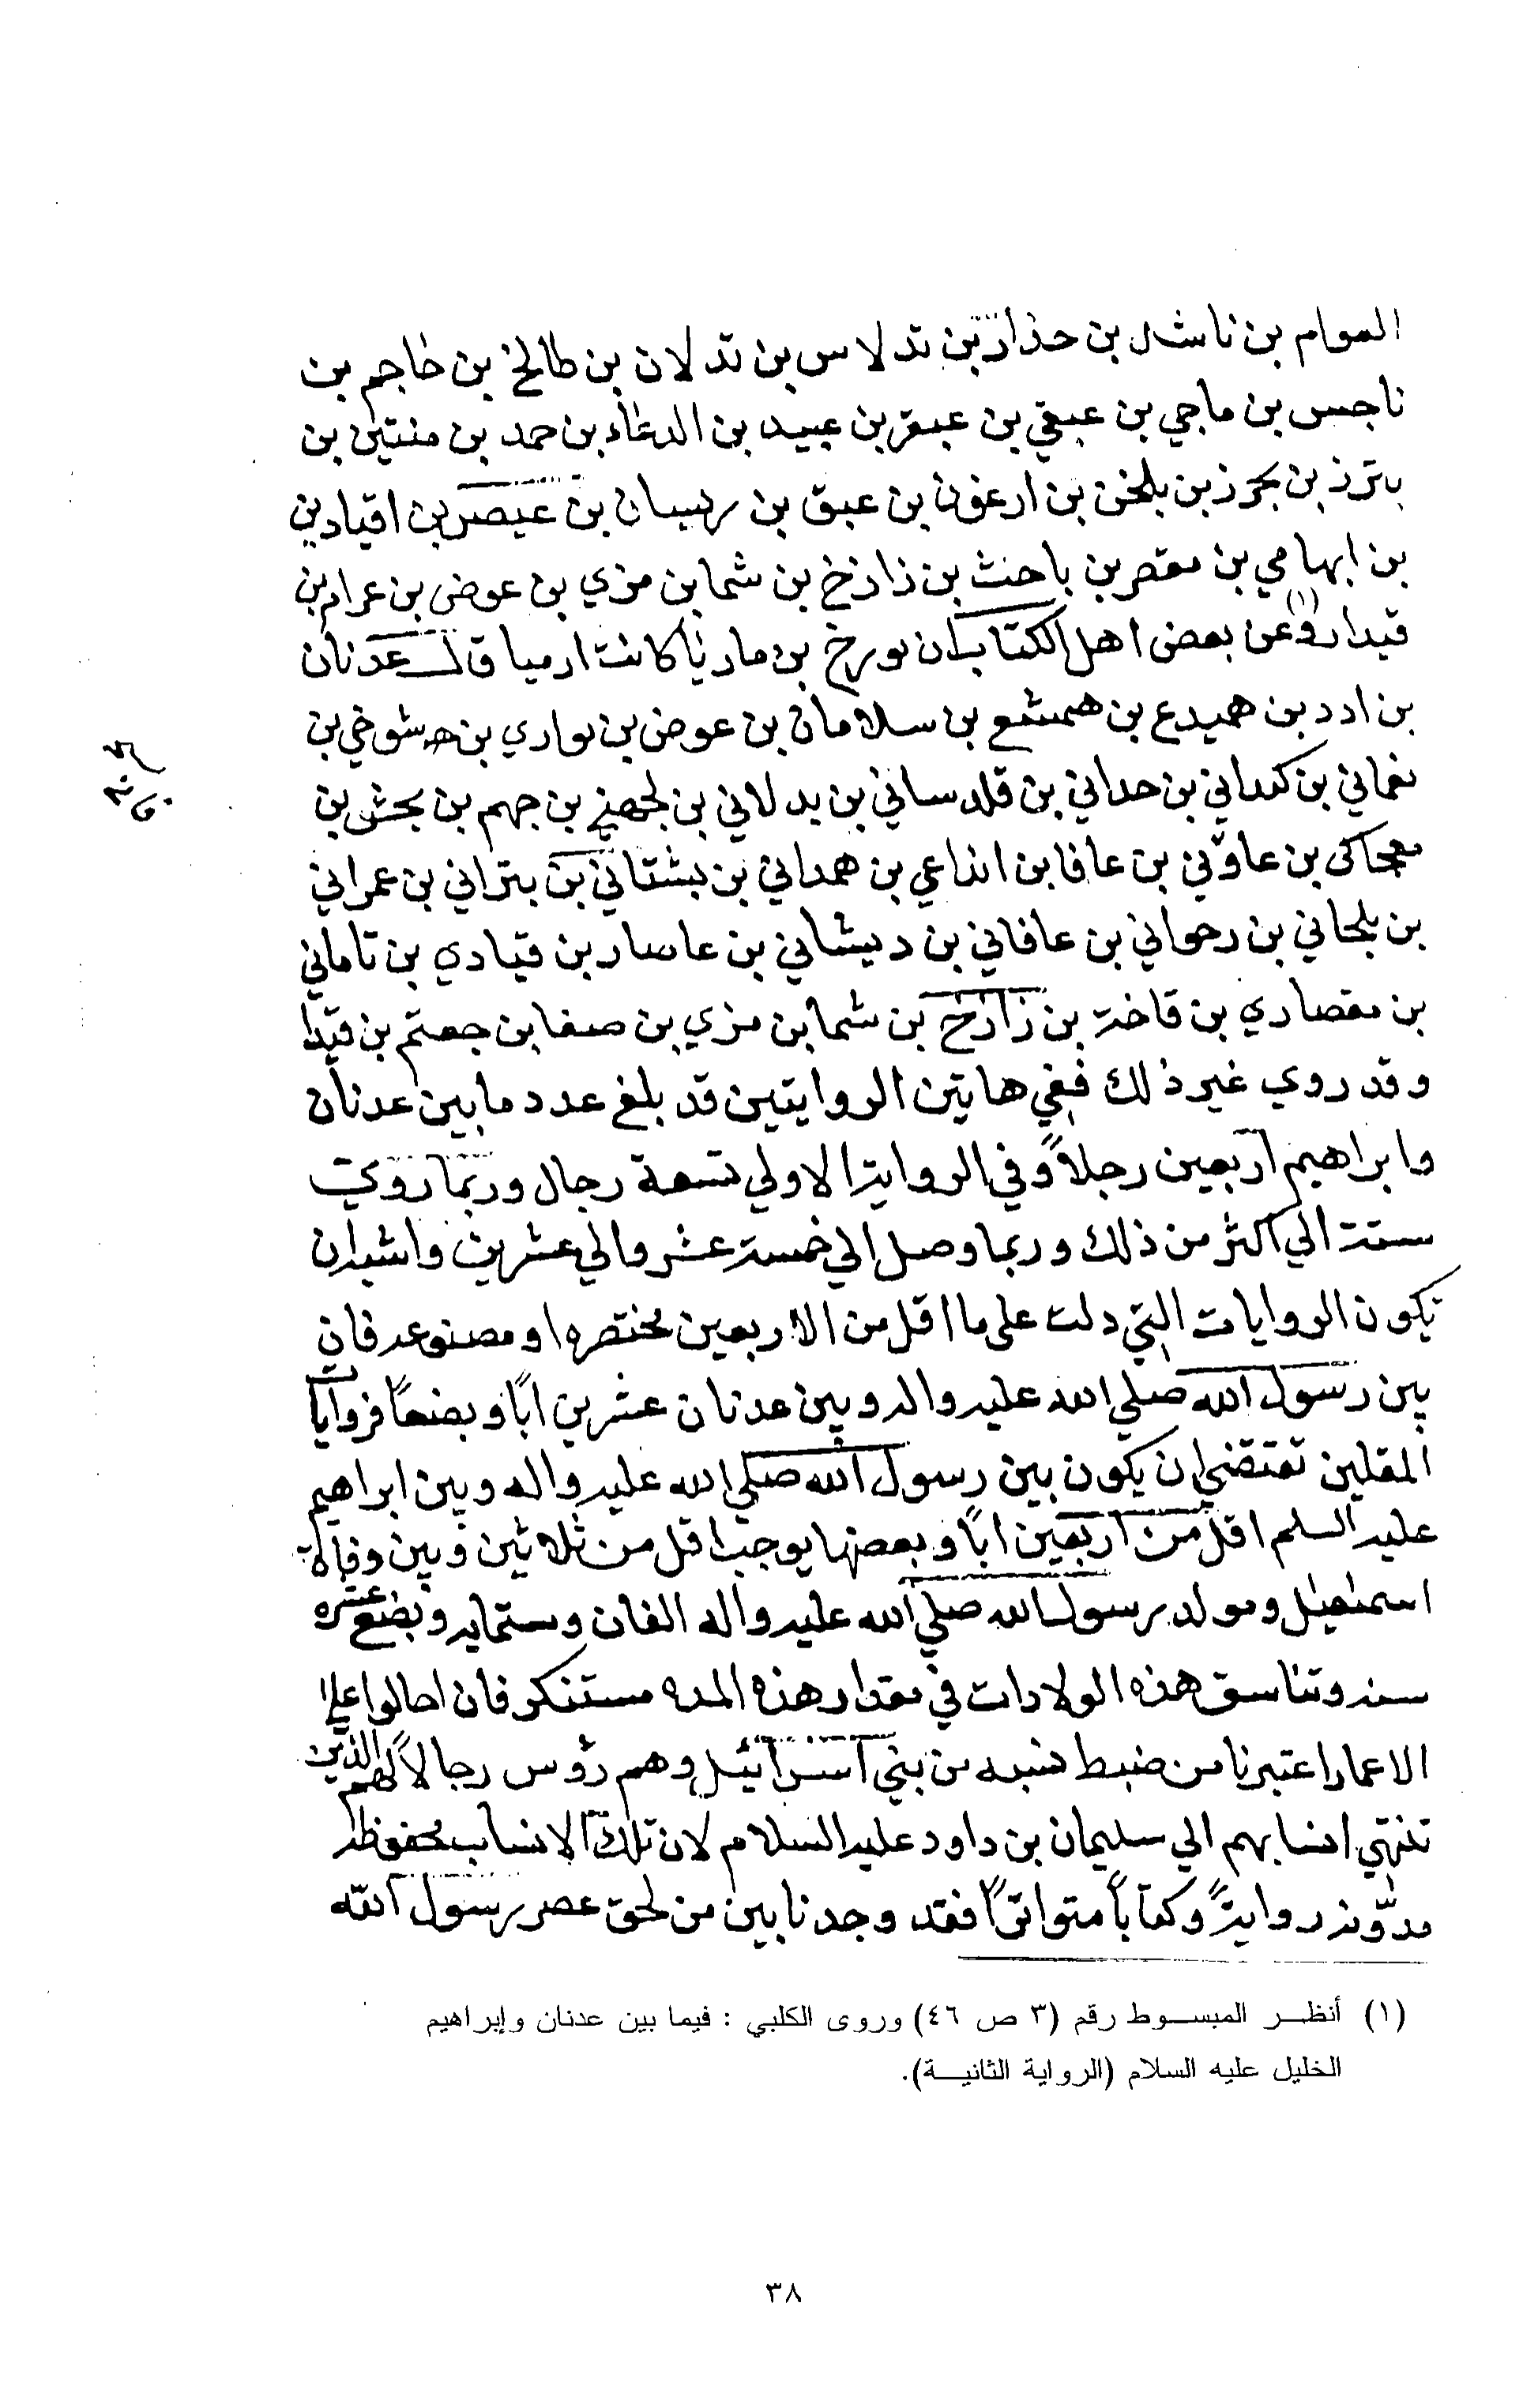 العوام بن ناشد بن حذار بن تدلاس بن تدلان بن طالخ بن خاجم بن
ناجس بن ماجي بن عبقي بن عبقر بن عبيد بن الدعاء بن حمد بن منتين بن
باترذ بن بحرز بن بلخن بن ارعون بن عبق بن ريسان بن عيصر بن اقيادين
بن ابهامي بن مقصر بن باحث بن زارخ بن شما بن مزي بن عوض بن عرام بن
قيدار (١) وعن بعض اهل الكتاب ان بورخ بن ماريا كاتب ارميا قال عدنان
بن ادد بن هميدع بن همشع بن سلامان بن عوض بن بواري بن شوخي بن
نغماني بن كداني بن حداني بن قلدساني بن بدلاني بن بن جهم بن بحش بن
معجاكى بن عاوني بن عافا بن انداعي بن همداني بن بشتاني بن بتراني بن عمراني
بن بلحاني بن رحواني بن عافاني بن ديشاني بن عاصار بن قيادي بن ثاماني
بن مقصاري بن قاخة بن زارخ بن شما بن مزي بن صفا بن جعتم بن قيدا
وقد روي غير ذلك ففي هاتين الروايتين قد بلغ عدد ما بين عدنان
وابراهيم اربعين رجلاً وفي الرواية الاولي تسعة رجال وربما روي
ستة الي اكثر من ذلك وربما وصل الي خمسة عشر والي عشرين واشبه ان
تكون الروايات التي دلت على ما اقل من الاربعين مختصره او مصنوعه فان
بين رسول الله صلي الله عليه واله وبين عدنان عشرين اباً وبضعاً فروايا
المقلين تقتضي ان يكون بين رسول الله صلي الله عليه واله وبين ابراهيم
عليه السلم اقل من اربعين اباً وبعضها يوجب اقل من ثلاثين وبين وفاة
اسمعيل ومولد رسول الله صلي الله عليه واله الفان وستمايه وبضع عشره
سنه وتناسق هذه الولادات في مقدار هذه المده مستنكر فان احالوا علي
الاعمار اعتبرنا من ضبط نسبه من بني اسرائيل وهم رؤس رجالاتهم الذين
تنتهي انسابهم الي سليمان بن داود عليه السلام لان تلك الانساب محفوظه
مدوّنه روايةً وكتاباً متواتراً فقد وجدنا بين من لحق عصر رسول الله
(١) أنظر المبسوط رقم (٣ ص ٤٦) وروى الكلبي : فيما بين عدنان وإبراهيم
الخليل عليه السلام (الرواية الثانية).
٣٨